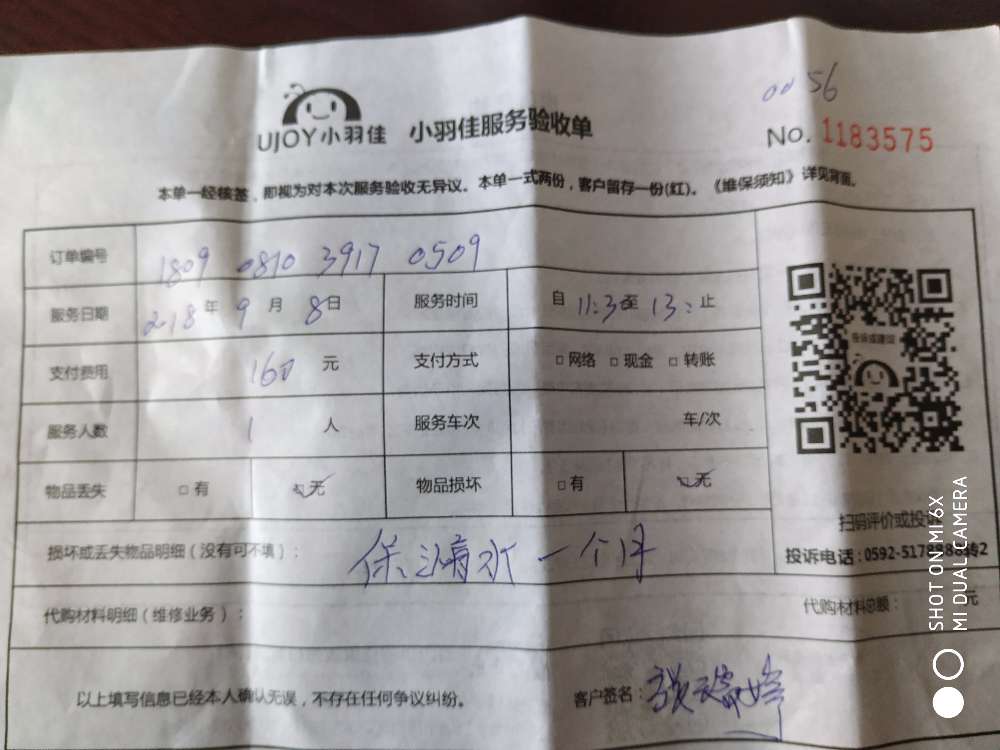 00 56
UJOY小羽佳 小羽佳服务验收单
No. 1183575
本单一经核签，即视为对本次服务验收无异议。本单一式两份，客户留存一份(红)。《维保须知》详见背面。
订单编号 1809 0810 3917 0509
服务日期 218年9月8日 服务时间 自 11:3至 13: 止
支付费用 160 元 支付方式 □网络 □现金 □转账
服务人数 1 人 服务车次 车/次
物品丢失 □有 □无 物品损坏 □有 □无
扫码评价或投诉
损坏或丢失物品明细(没有可不填)： 保 水一个月
投诉电话：0592-5178888转2
代购材料明细(维修业务)： 代购材料总额： 元
以上填写信息已经本人确认无误，不存在任何争议纠纷。 客户签名：张
SHOT ON MI 6X
MI DUAL CAMERA